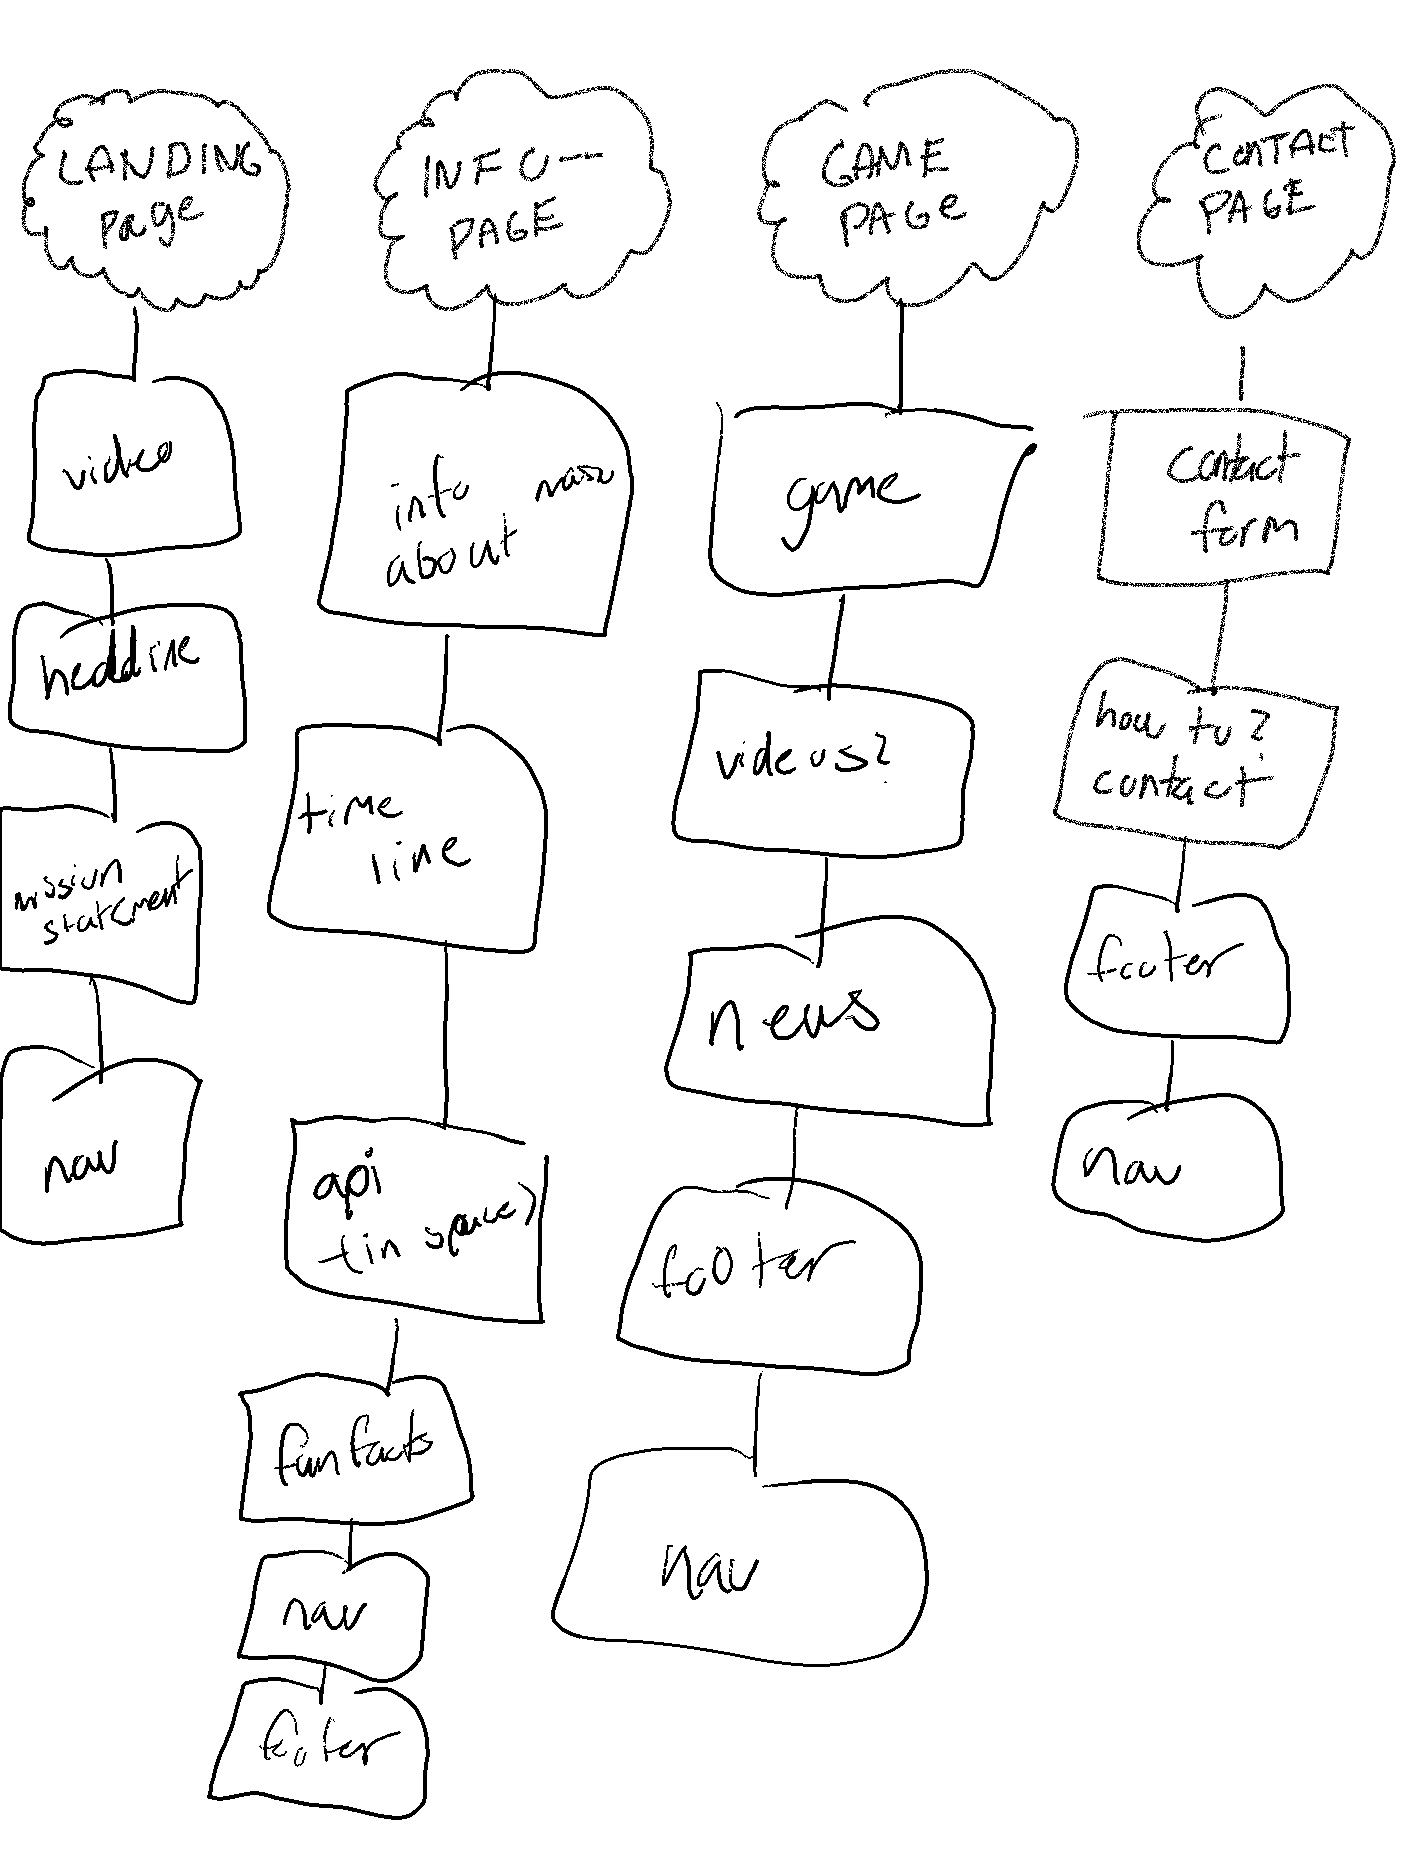 LANDING
Page
video
headline
mission
statement
nav
INFO—
PAGE
info
about nasa
time
line
api
(in space)
fun facts
nav
footer
GAME
PAGE
game
videos?
news
footer
nav
CONTACT
PAGE
contact
form
how to?
contact
footer
nav